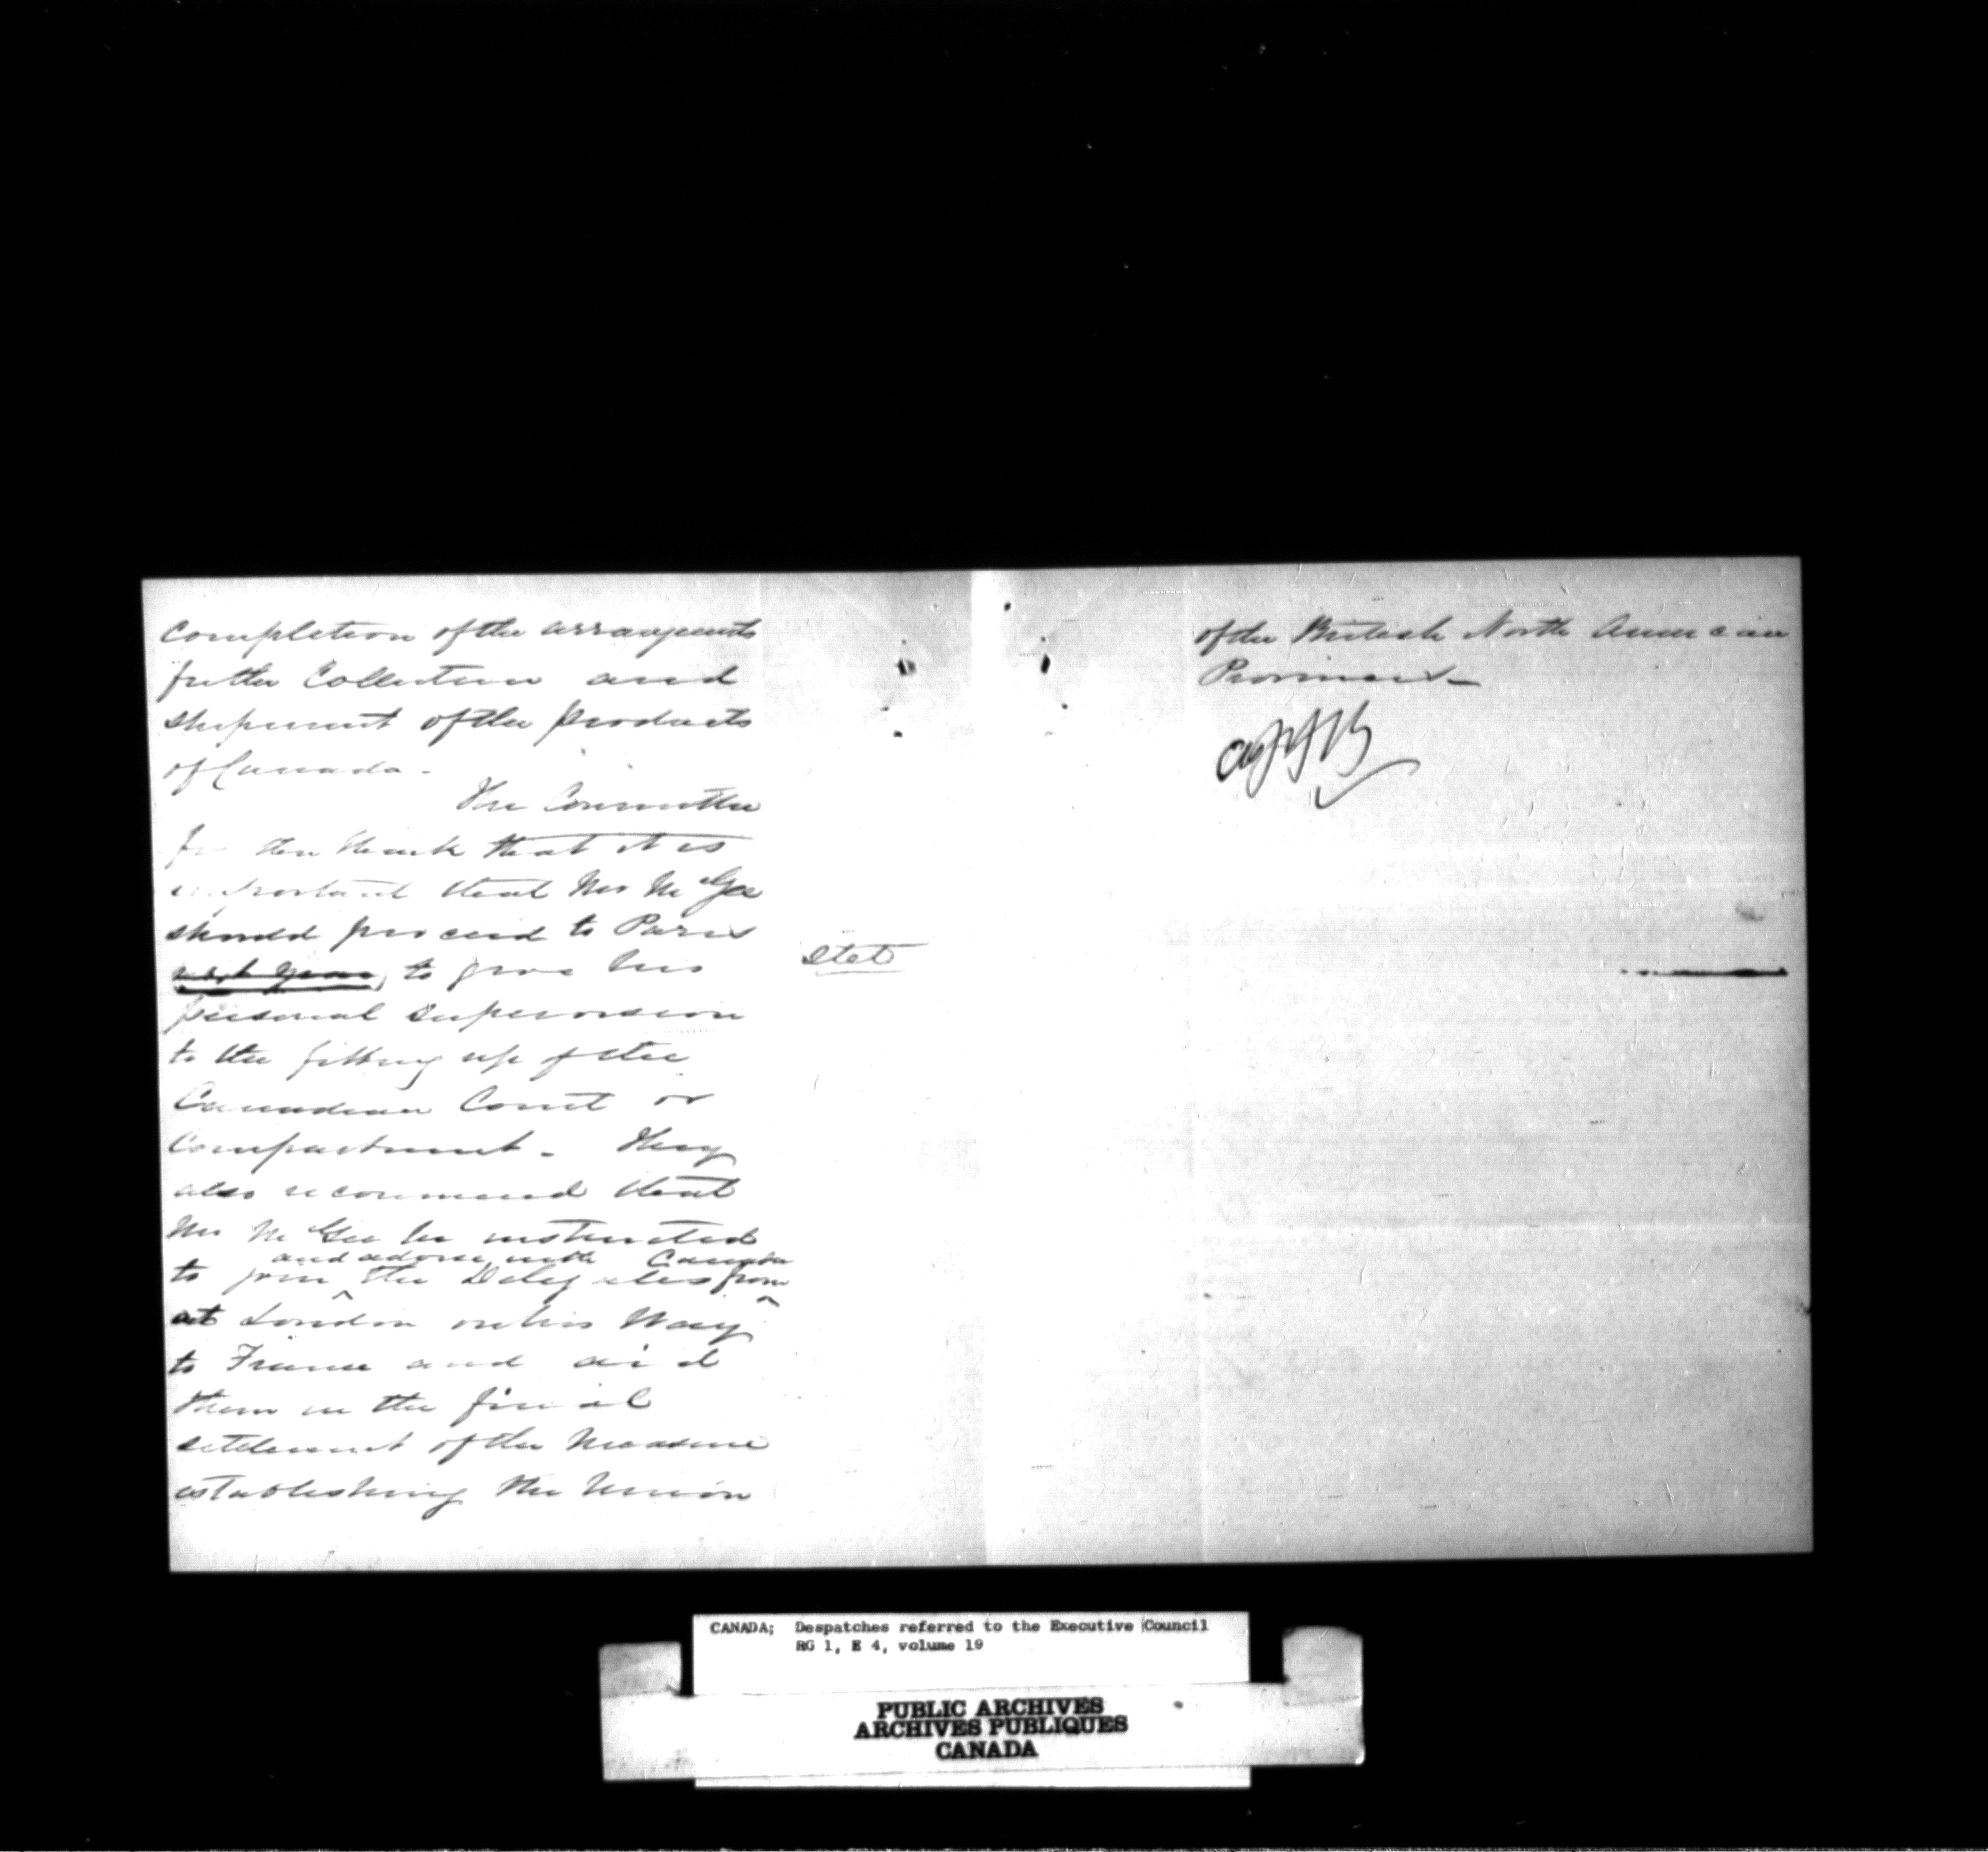 completion of the arrangements
for the Collection and
shipment of the products
of Canada -
The Committee
further think that it is
important that Mr McGee
should proceed to Paris
next year, to give his
stet
personal supervision
to the fitting up of the
Canadian Court or
Compartment - They
also recommend that
Mr McGee be instructed
and advise with Canada
to join the Delegates from
at London on his Way
to France and aid
them in the final
settlement of the Measure
establishing the Union
of the British North American
Provinces -
CANADA; Despatches referred to the Executive Council
RG 1, E 4, volume 19
PUBLIC ARCHIVES
ARCHIVES PUBLIQUES
CANADA